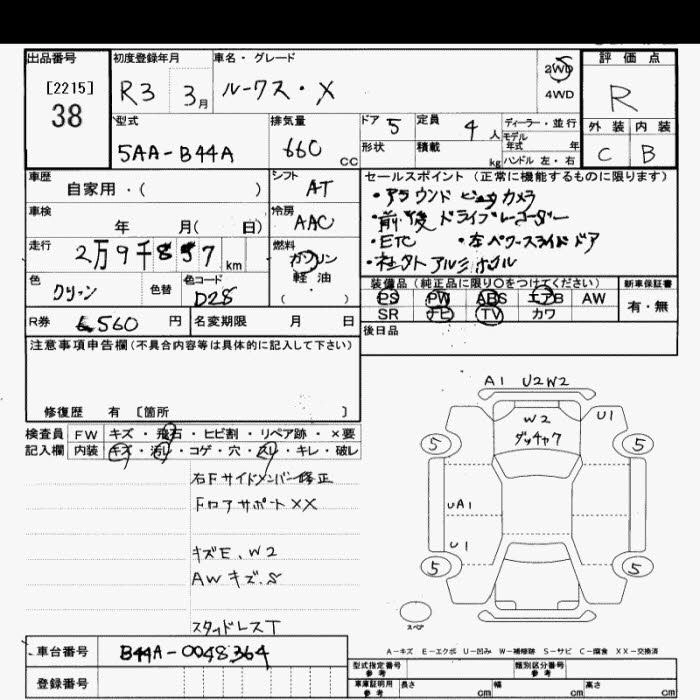 出品番号
[2215]
38
初度登録年月
R3 3月
車名・グレード
ルークス・X
2WD
4WD
評価点
R
外装 内装
C B
型式
5AA-B44A
排気量
660 CC
ドア 5
形状
定員 4 人
積載 kg
ディーラー・並行
モデル年式 年
ハンドル 左・右
車歴
自家用・( )
シフト
AT
車検
年 月( 日)
冷房
AAC
走行
2万9千857 km
燃料
ガソリン
軽油
( )
色
グリーン
色替
色コード
D28
R券
6560 円
名変期限 月 日
セールスポイント (正常に機能するものに限ります)
・アラウンドビューカメラ
・前後ドライブレコーダー
・ETC ・左パワースライドドア
・社外アルミホイル
装備品(純正品に限り〇をつけてください)
PS PW ABS エアB AW
SR ナビ TV カワ
新車保証書
有・無
後日品
注意事項申告欄(不具合内容等は具体的に記入して下さい)
修復歴 有 〔箇所 〕
検査員記入欄
FW キズ・飛石・ヒビ割・リペア跡・×要
内装 キズ・汚レ・コゲ・穴・スレ・キレ・破レ
右Fサイドメンバー修正
Fロアサポート××
キズE、W2
AWキズ.S
スタッドレスT
A1 U2W2
W2
U1
5 5
UA1
U1
5 5
スペア
A-キズ E-エクボ U-凹み W-補修跡 S-サビ C-腐食 XX-交換済
車台番号
B44A-0048364
登録番号
型式指定番号 参考
類別区分番号 参考
車庫証明用 参考
長さ cm 幅 cm 高さ cm